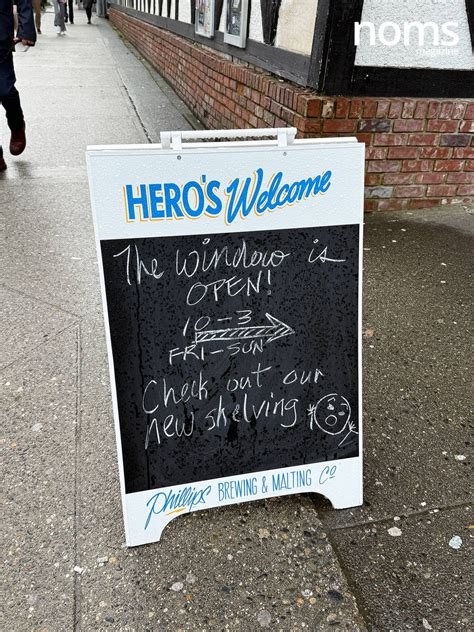 noms
magazine
HERO'S Welcome
The window is
OPEN!
10-3
FRI-SUN
Check out our
new shelving
Phillips BREWING & MALTING Co